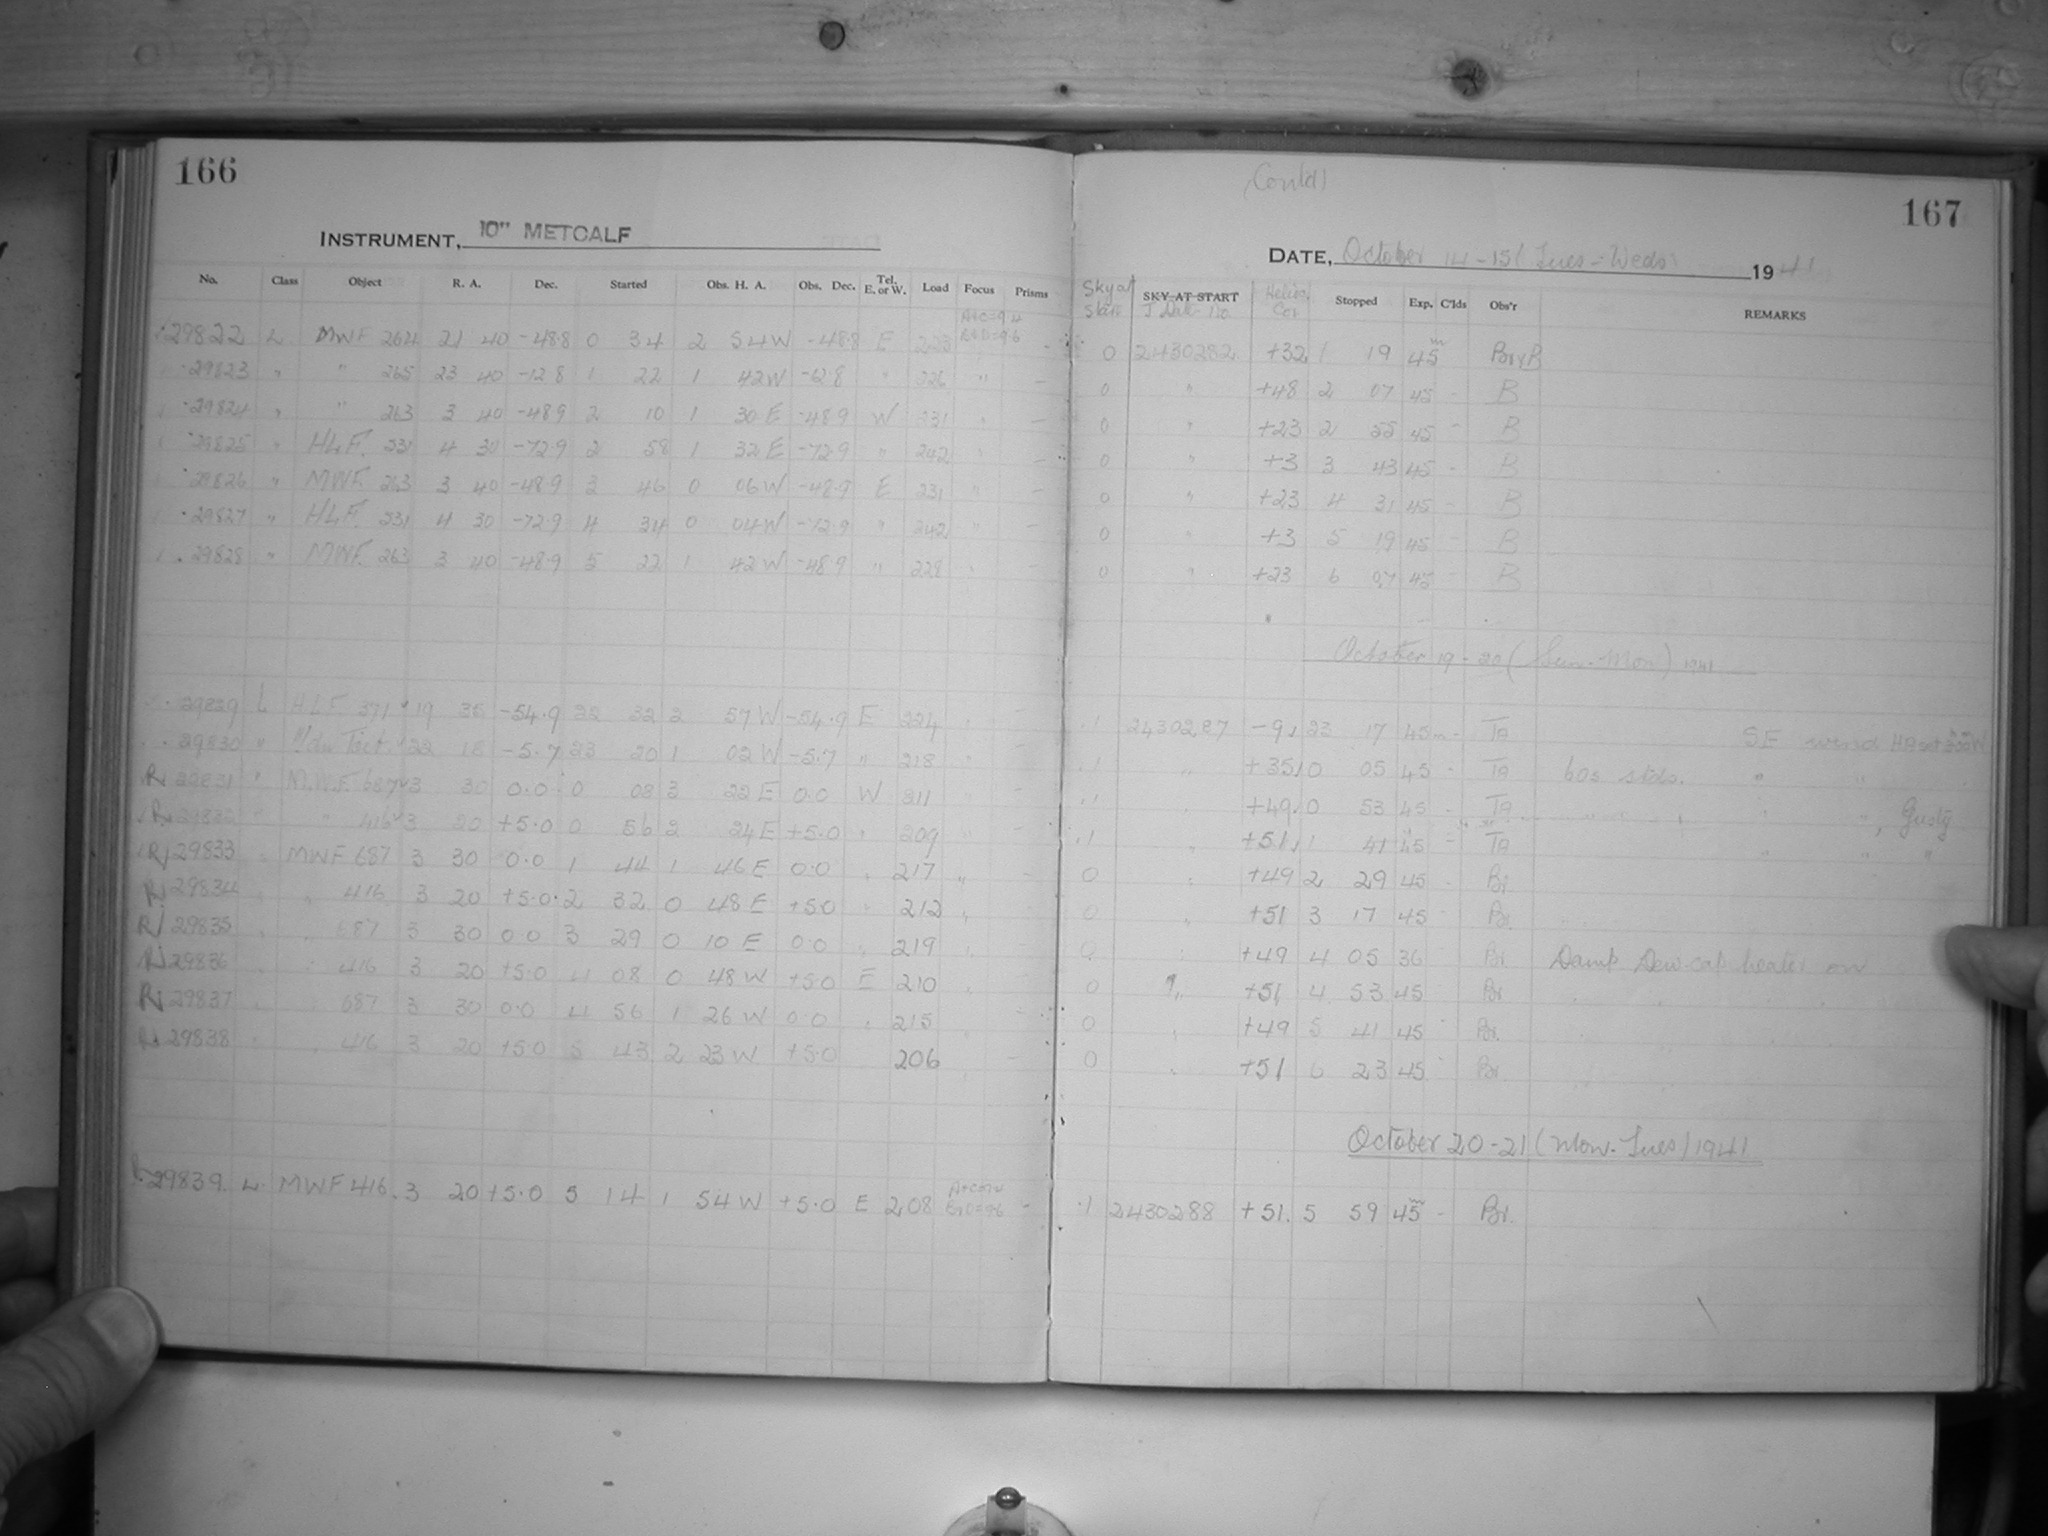 166
INSTRUMENT, 10" METCALF
No. Class Object R. A. Dec. Started Obs. H. A. Obs. Dec. Tel. E. or W. Load Focus Prisms
29822 L MWF 264 21 40 -48.8 0 34 2 54 W -48.8 E 223 -
29823 " " 265 23 40 1 22 1 42 W " 226 " -
29824 " " 263 3 40 -48.9 2 10 1 30 E -48.9 W 231 " -
29825 " HLF. 331 4 30 -72.9 2 58 1 32 E -72.9 " 242 " -
29826 " MWF. 263 3 40 -48.9 3 46 0 06 W -48.9 E 231 " -
29827 " HLF. 331 4 30 -72.9 4 34 0 04 W -72.9 " 242 " -
29828 " MWF. 263 3 40 -48.9 5 22 1 42 W -48.9 " 228 " -
29829 L HLF. 371 19 35 -54.9 22 32 2 57 W -54.9 E 224 -
29830 " 22 18 -5.7 23 20 1 02 W -5.7 " 218 -
29831 " M.W.F. 687 3 30 0.0 0 08 3 22 E 0.0 W 211 -
29832 " " 416 3 20 +5.0 0 56 2 24 E +5.0 " 209 " -
29833 MWF 687 3 30 0.0 1 44 1 46 E 0.0 " 217 " -
29834 " 416 3 20 +5.0 2 32 0 48 E +5.0 " 212 " -
29835 " 687 3 30 0.0 3 29 0 10 E 0.0 " 219 " -
29836 " 416 3 20 +5.0 4 08 0 48 W +5.0 E 210 " -
29837 " 687 3 30 0.0 4 56 1 26 W 0.0 " 215 -
29838 " 416 3 20 +5.0 5 43 2 23 W +5.0 206 -
29839 L. MWF 416 3 20 +5.0 5 14 1 54 W +5.0 E 208 -
(Contd)
167
DATE, October 14-15 (Tues-Weds) 1941
Sky at start SKY AT START J Date No. Helio. Cor Stopped Exp. C'lds Obs'r REMARKS
0 2430282 +32 1 19 45m
0 " +48 2 07 45 - B
0 " +23 2 55 45 - B
0 " +3 3 43 45 - B
0 " +23 4 31 45 - B
0 " +3 5 19 45 - B
0 " +23 6 07 45 - B
October 19-20 (Sun-Mon) 1941
.1 2430287 -9 23 17 45m - Ta SE wind
.1 " +35 0 05 45 - Ta 60s stds. " "
.1 " +49 0 53 45 - Ta " ", Gusty
.1 " +51 1 41 45 - Ta " " "
0 " +49 2 29 45 - Br.
0 " +51 3 17 45 - Br.
0 " +49 4 05 36 Br. Damp Dew cap heater on
0 " +51 4 53 45 Br. " " " "
0 " +49 5 41 45 - Br.
0 " +51 6 23 45 - Br.
October 20-21 (Mon-Tues) 1941
.1 2430288 +51. 5 59 45m - Br.